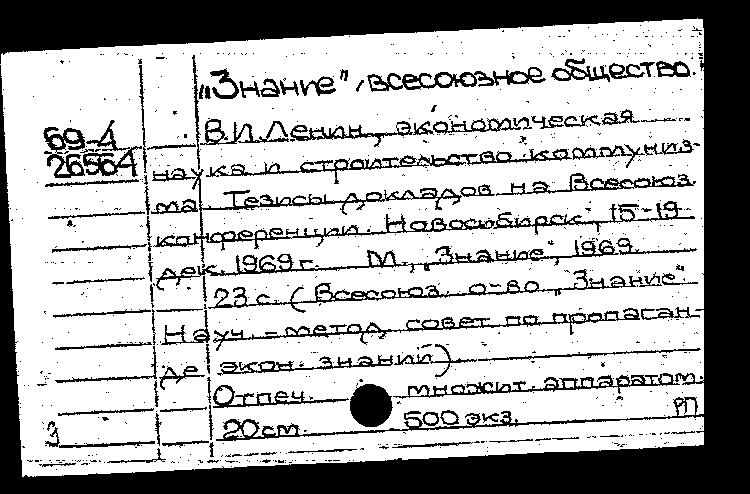 „Знание", всесоюзное общество.
69-4
26564
В.И.Ленин, экономическая
наука и строительство коммуниз-
ма. Тезисы докладов на Всесоюз.
конференции. Новосибирск, 15-19
дек. 1969 г. М., „Знание", 1969.
23 с. (Всесоюз. о-во „Знание".
Науч.-метод. совет по пропаган-
де экон. знаний).
Отпеч. множит. аппаратом.
20 см. 500 экз. РП
З